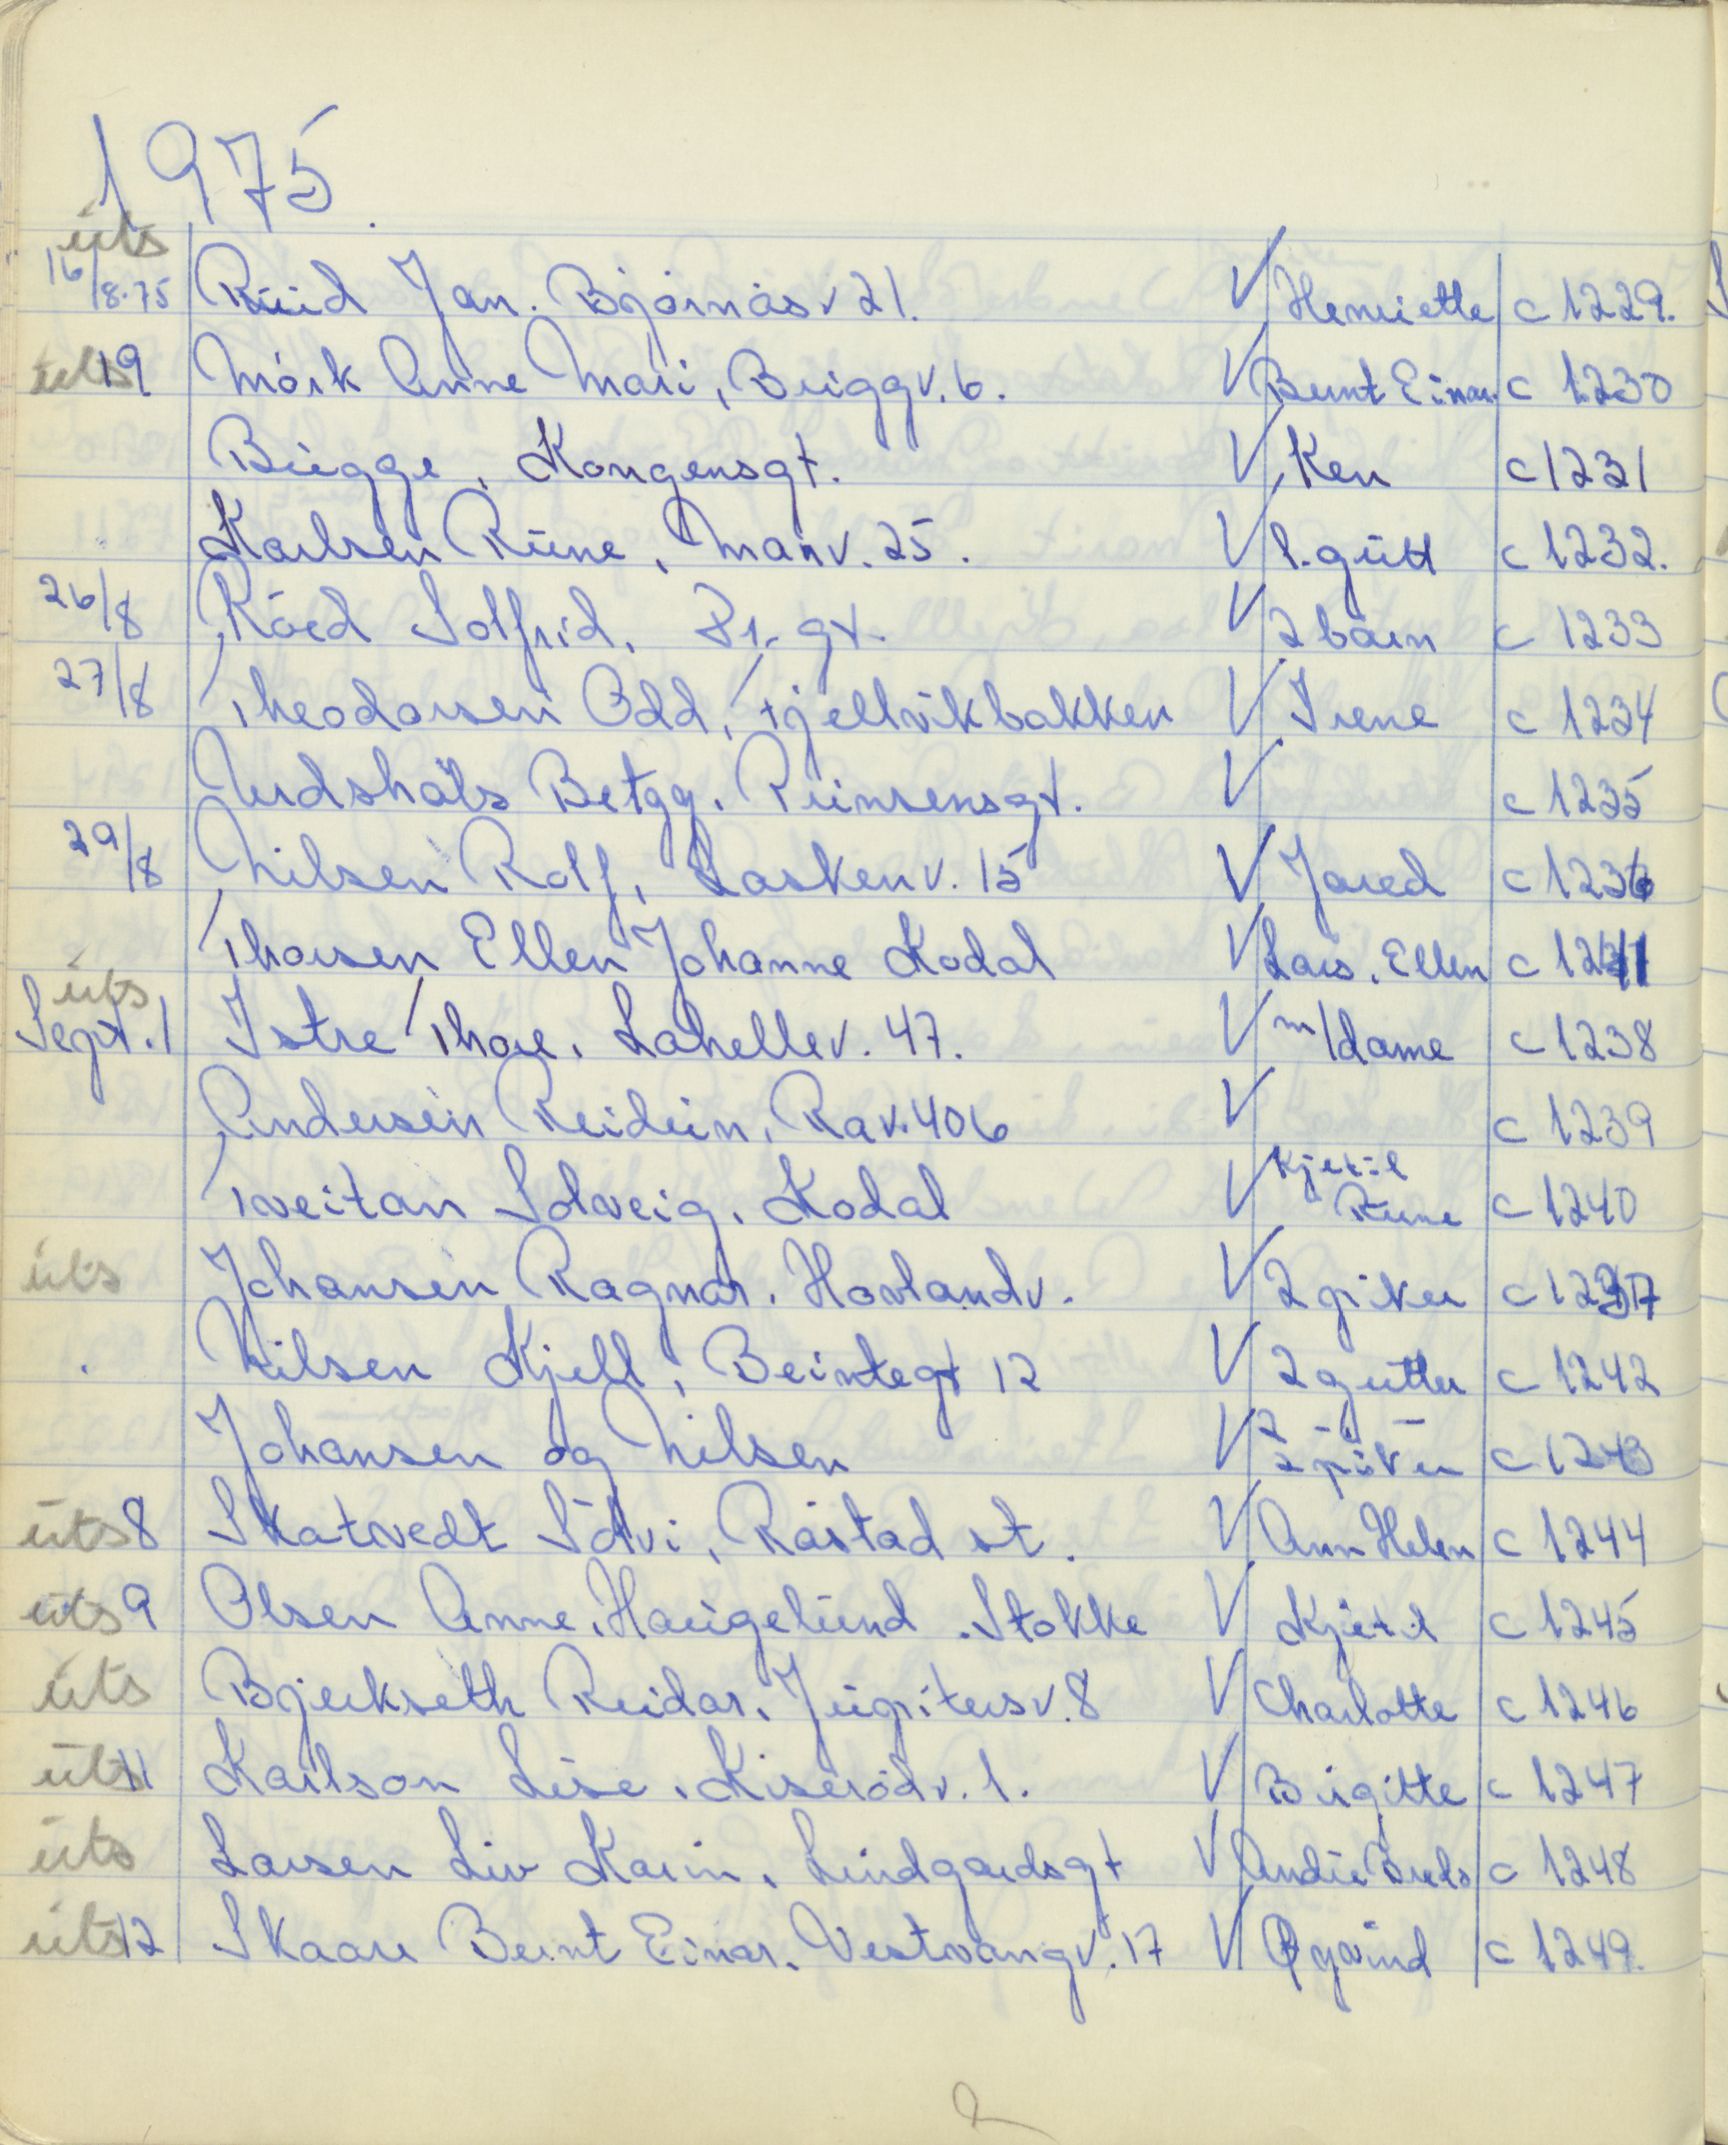 1975.
üts
16/8.75 Rüüd Jan. Bjørnåsv 21. V Henriette c 1229.
üts 19 Mørk Anne Mari, Briggv. 6. V Bernt Einar. c 1230
Brügge, Kongensgt. V Ken c 1231
Karlsen Rüne, Marv. 25. V l. gütt c 1232.
26/8 Röed Solfrid, Pr. gt. V 2 barn c 1233
27/8 Theodorsen Odd, Fjellvikbakken V Irene c 1234
Betgg. Prinsensgt. V c 1235
29/8 Nilsen Rolf, Laskenv. 15 V Jared c 1236
Thorsen Ellen Johanne Kodal V Lars. Ellen c 1241
üts
Sept. 1 Istre Thore. Lahellev. 47. V m/dame c 1238
Andersen Reidun, Rav. 406 V c 1239
Tveitan Solveig. Kodal V Kjetil Rune c 1240
üts Johansen Ragnar. Hovlandv. V 2 piker c 1237
Nilsen Kjell, Beintegt 12 V 2 gutter c 1242
Johansen og Nilsen V 2 - " - 2 piker c 1243
üts 8 Skatvedt Solvi, Råstad st. V Ann Helen c 1244
üts 9 Olsen Anne. Haügelünd. Stokke V Kjetil c 1245
üts Bjerkseth Reidar. Jüpitersv. 8 V Charlotte c 1246
üts 11 Karlson Lise. Kiserødv. 1. V Birgitte c 1247
üts Larsen Liv Karin. Lindgardsgt V c 1248
üts 12 Skaare Bernt Einar. Vestvangv. 17 V Øyvind c 1249.
2